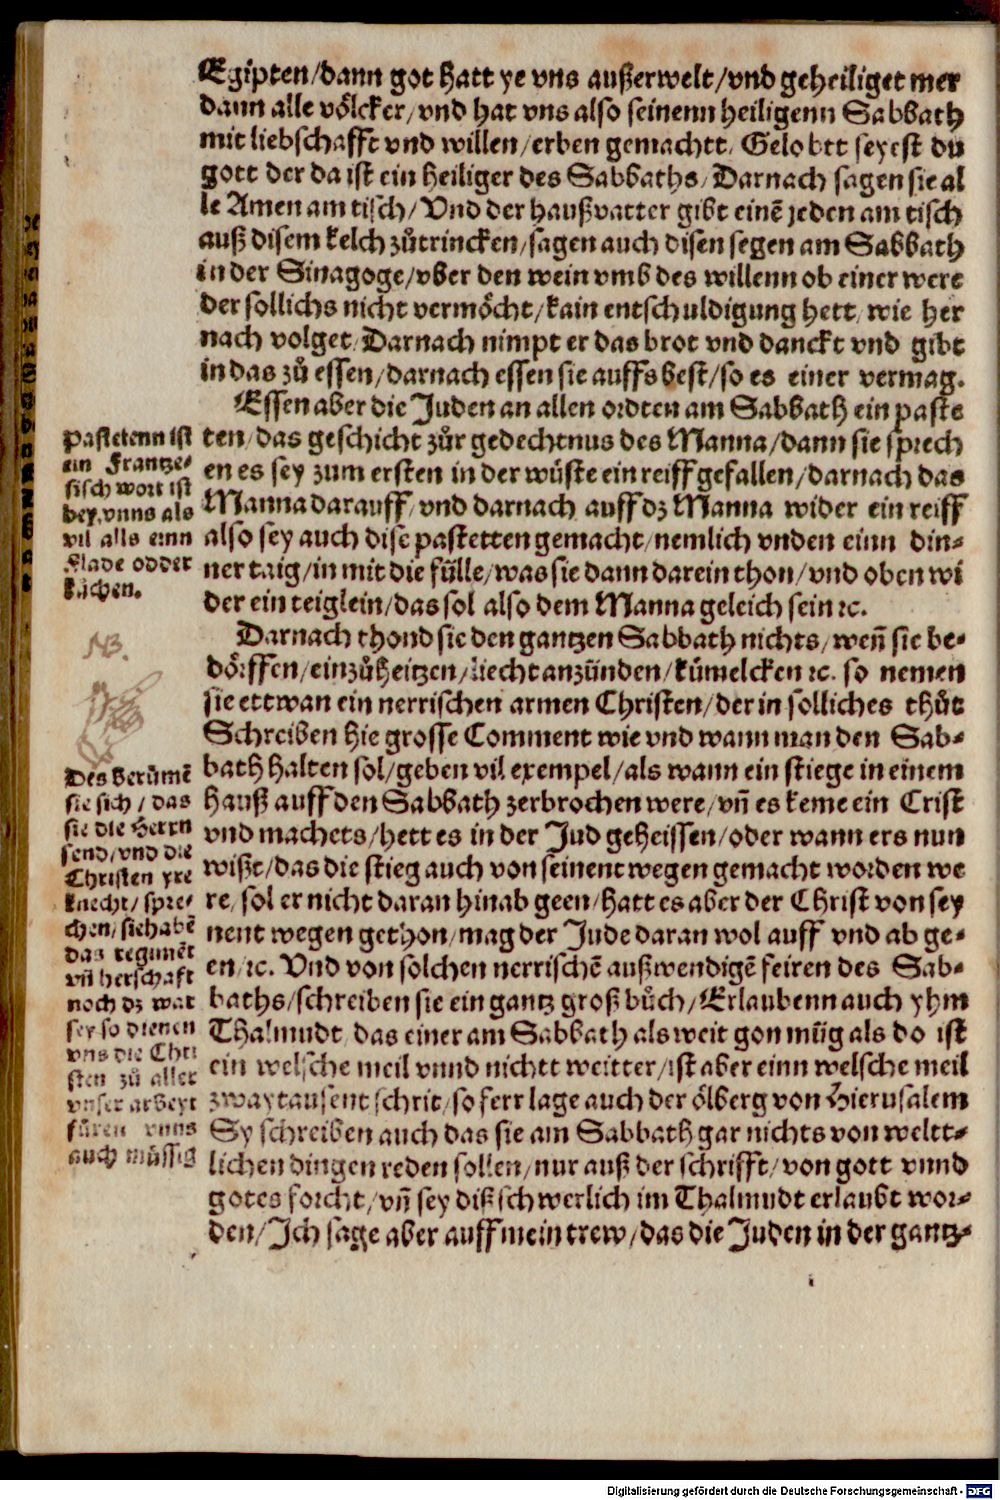 Egipten/dann got hatt ye vns außerwelt/vnd geheiliget mer
dann alle völcker/vnd hat vns also seinenn heiligenn Sabbath
mit liebschafft vnd willen/erben gemachtt/ Gelobtt seyest du
gott der da ist ein heiliger des Sabbaths/Darnach sagen sie al
le Amen am tisch/Vnd der haußvatter gibt einē jeden am tisch
auß disem kelch zůtrincken/sagen auch disen segen am Sabbath
in der Sinagoge/vber den wein vmb des willenn ob einer were
der sollichs nicht vermöcht/kain entschuldigung hett/wie her
nach volget/Darnach nimpt er das brot vnd danckt vnd gibt
in das zů essen/darnach essen sie auffs best/so es einer vermag.
Essen aber die Juden an allen ordten am Sabbath ein paste
ten/das geschicht zůr gedechtnus des Manna/dann sie sprech
en es sey zum ersten in der wüste ein reiff gefallen/darnach das
Manna darauff/vnd darnach auff dz Manna wider ein reiff
also sey auch dise pastetten gemacht/nemlich vnden einn din-
ner taig/in mit die fülle/was sie dann darein thon/vnd oben wi
der ein teiglein/das sol also dem Manna geleich sein ꝛc.
Pastetenn ist
ein Frantze-
sisch wort ist
bey vnns als
vil alls einn
Flade odder
kůchen.
Darnach thond sie den gantzen Sabbath nichts/weñ sie be-
dörffen/einzůheitzen/liecht anzünden/kümelcken ꝛc. so nemen
sie ettwan ein nerrischen armen Christen/der in solliches thůt
Schreiben hie grosse Comment wie vnd wann man den Sab-
bath halten sol/geben vil exempel/als wann ein stiege in einem
hauß auff den Sabbath zerbrochen were/vñ es keme ein Crist
vnd machets/hett es in der Jud geheissen/oder wann ers nun
wißt/das die stieg auch von seinent wegen gemacht worden we
re/sol er nicht daran hinab geen/hatt es aber der Christ von sey
nent wegen gethon/mag der Jude daran wol auff vnd ab ge-
en/ꝛc. Vnd von solchen nerrischē außwendigē feiren des Sab-
baths/schreiben sie ein gantz groß bůch/Erlaubenn auch yhm
Thalmudt/das einer am Sabbath als weit gon müg als do ist
ein welsche meil vnnd nichtt weitter/ist aber einn welsche meil
zwaytausent schrit/so ferr lage auch der ölberg von Hierusalem
Sy schreiben auch das sie am Sabbath gar nichts von weltt-
lichen dingen reden sollen/nur auß der schrifft/von gott vnnd
gotes forcht/vñ sey diß schwerlich im Thalmudt erlaubt wor-
den/Ich sage aber auff mein trew/das die Juden in der gantz-
NB.
Des berümē
sie sich/das
sie die Herrn
send/vnd die
Christen yre
knecht/spre-
chen/sie habē
das regimēt
vñ herschaft
noch dz war
sey so dienen
vns die Chri
sten zů aller
vnser arbeyt
füren vnns
auch müssig
Digitalisierung gefördert durch die Deutsche Forschungsgemeinschaft - DFG